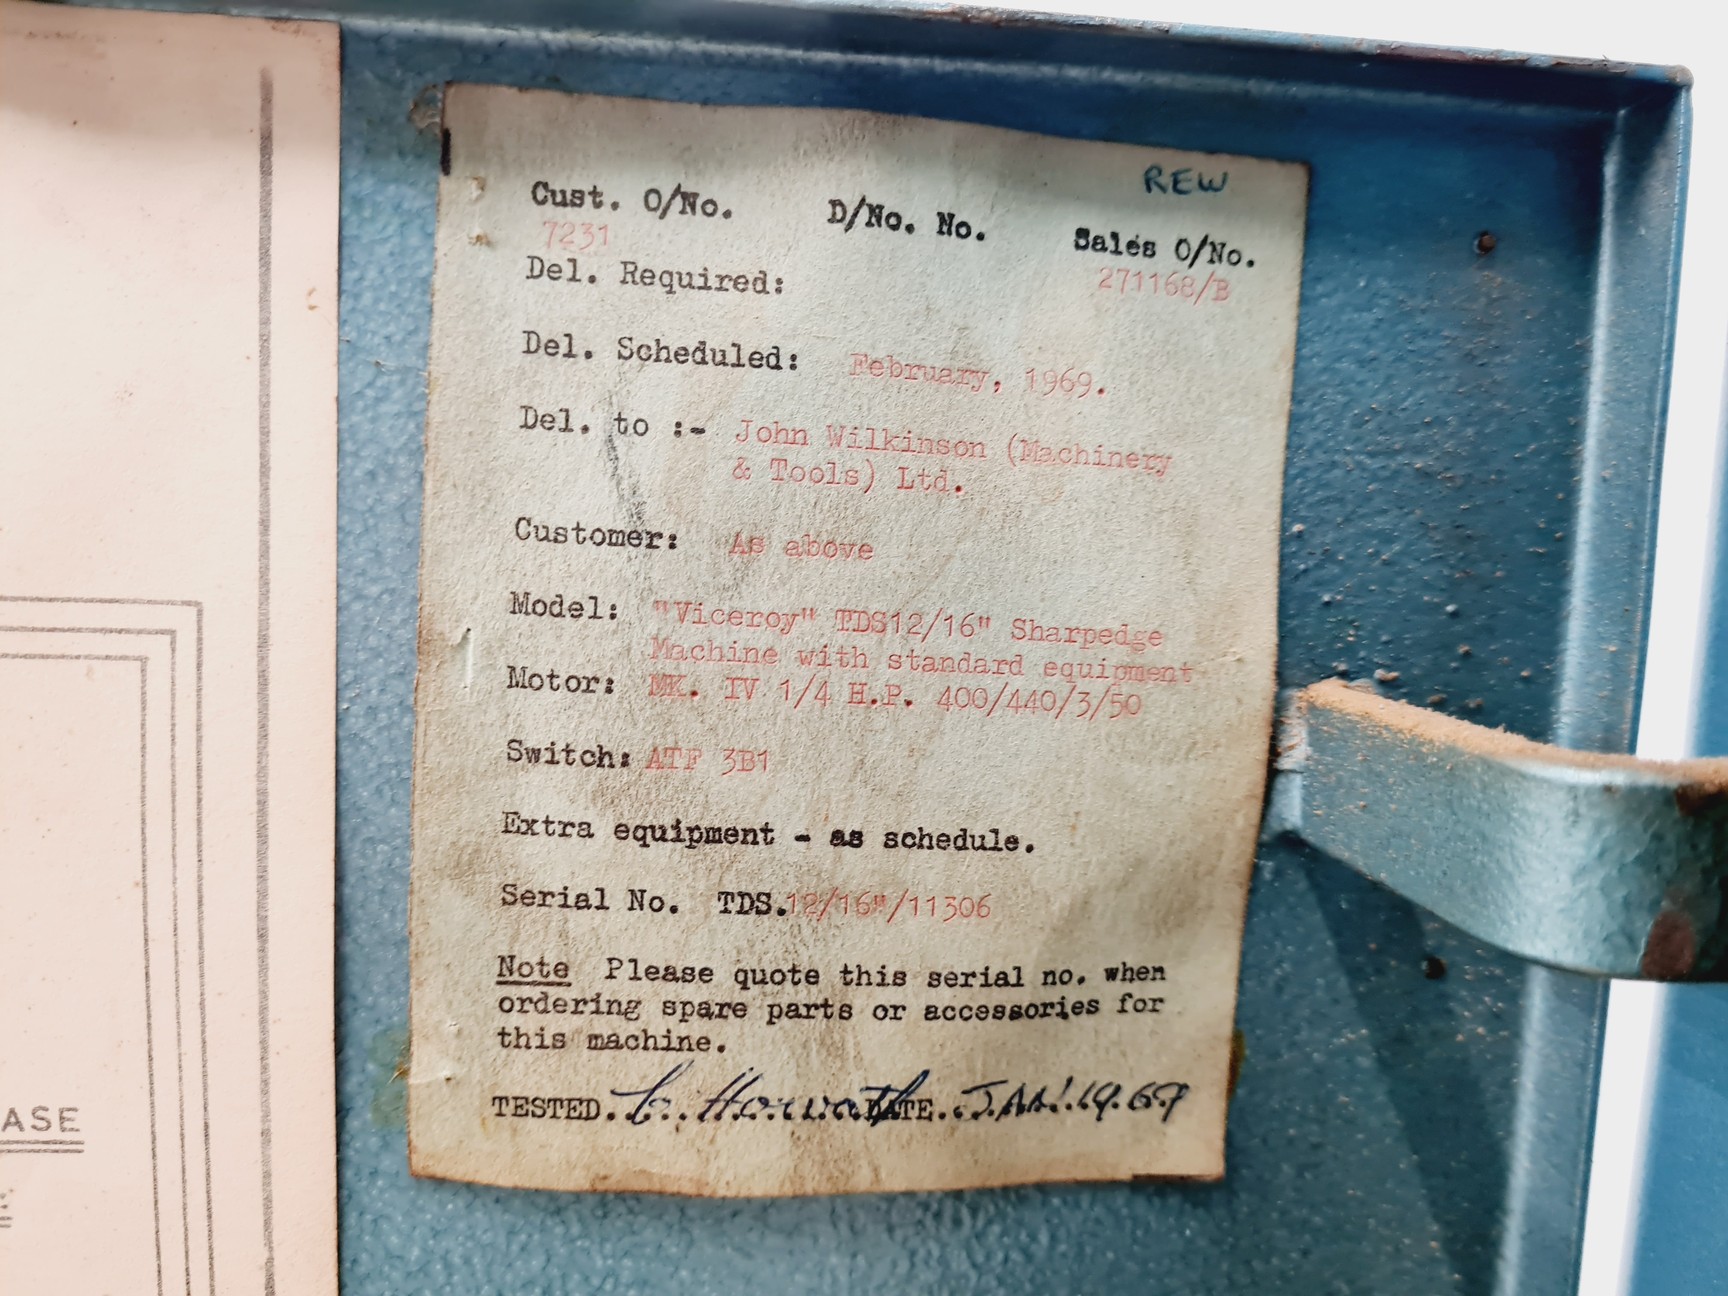 REW
Cust. O/No. D/No. No. Sales O/No.
7231 271168/B
Del. Required:
Del. Scheduled: February, 1969.
Del. to :- John Wilkinson (Machinery
& Tools) Ltd.
Customer: As above
Model: "Viceroy" TDS12/16" Sharpedge
Machine with standard equipment
Motor: MK. IV 1/4 H.P. 400/440/3/50
Switch: ATF 3B1
Extra equipment - as schedule.
Serial No. TDS.12/16"/11306
Note Please quote this serial no. when
ordering spare parts or accessories for
this machine.
TESTED. Horvath DATE. JAN. 1969
ASE